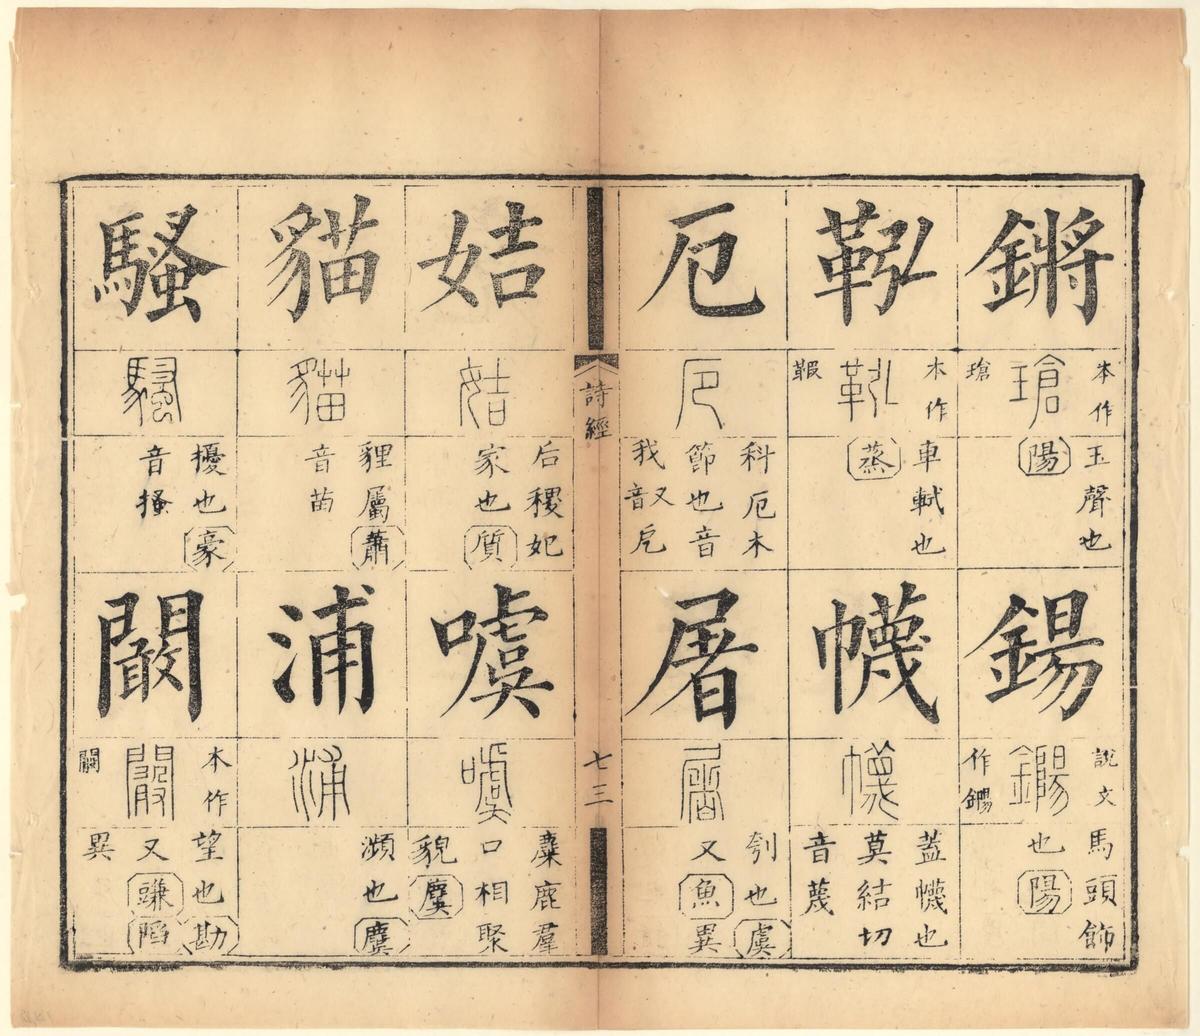 鏘
本作
瑲
瑲
玉聲也
陽
鍚
說文
鐊
作鐊
馬頭飾
也陽
鞃
本作
鞃
車軾也
蒸
幭
幭
蓋幭也
莫結切
音蔑
厄
厄
科厄木
節也音
我又音
屠
屠
刳也虞
又魚異
詩經
七三
姞
姞
后稷妃
家也質
噳
噳
麋鹿羣
口相聚
貌麌
貓
貓
貍屬蕭
音苗
浦
浦
瀕也麌
騷
騷
擾也豪
音搔
闞
本作
闞
望也勘
又豏陷
異